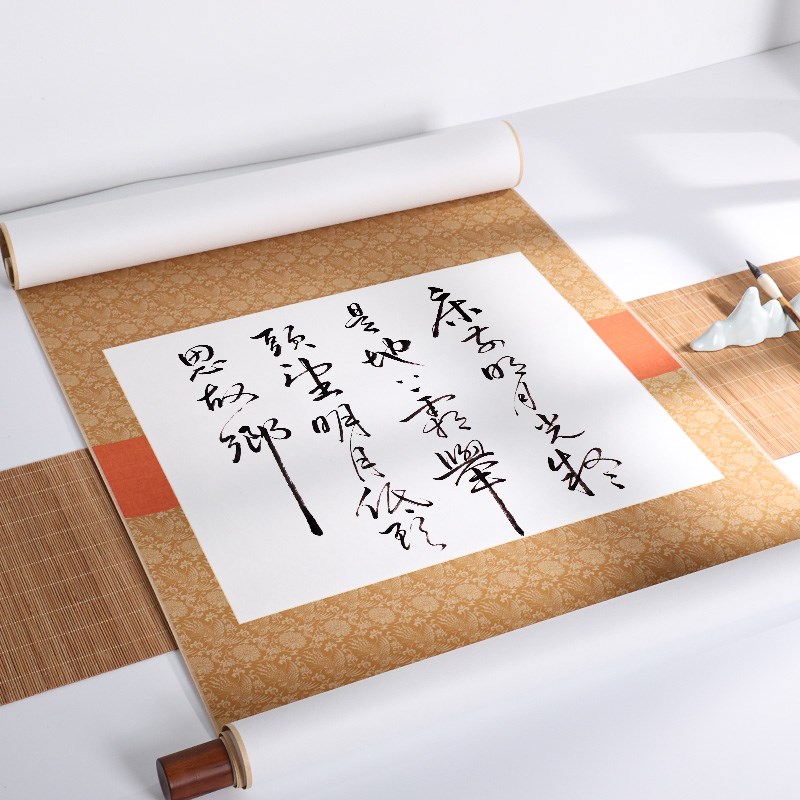 床前明月光疑
是地上霜舉
頭望明月低頭
思故鄉